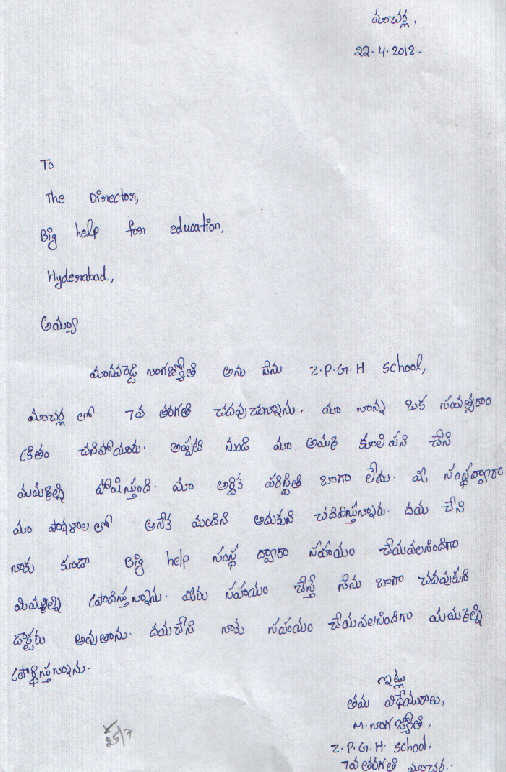 మాచర్ల,
22-4-2012-
To
The Director,
Big help for education,
Hyderabad,
అయ్యా
నాగజ్యోతి అను నేను Z.P.G.H School,
మాచర్ల లో 7వ తరగతి చదువుచున్నాను. మా నాన్న ఒక సంవత్సరం
క్రితం చనిపోయాడు. అప్పటి నుండి మా అమ్మ కూలి పని చేసి
మమ్మల్ని పోషిస్తుంది. మా ఆర్థిక పరిస్థితి బాగా లేదు. మీ సంస్థ ద్వారా
మా పాఠశాల లో అనేక మందిని ఆదుకుని చదివిస్తున్నారు. దయ చేసి
నాకు కూడా Big help సంస్థ ద్వారా సహాయం చేయవలసిందిగా
మిమ్మల్ని ప్రార్థిస్తున్నాను. మీరు సహాయం చేస్తే నేను బాగా చదువుకుని
డాక్టరు అవుతాను. దయచేసి నాకు సహాయం చేయవలసిందిగా మిమ్మల్ని
ప్రార్థిస్తున్నాను.
ఇట్లు
తమ విధేయురాలు,
M. నాగ జ్యోతి,
Z.P.G.H. School.
7వ తరగతి మాచర్ల.
25/7